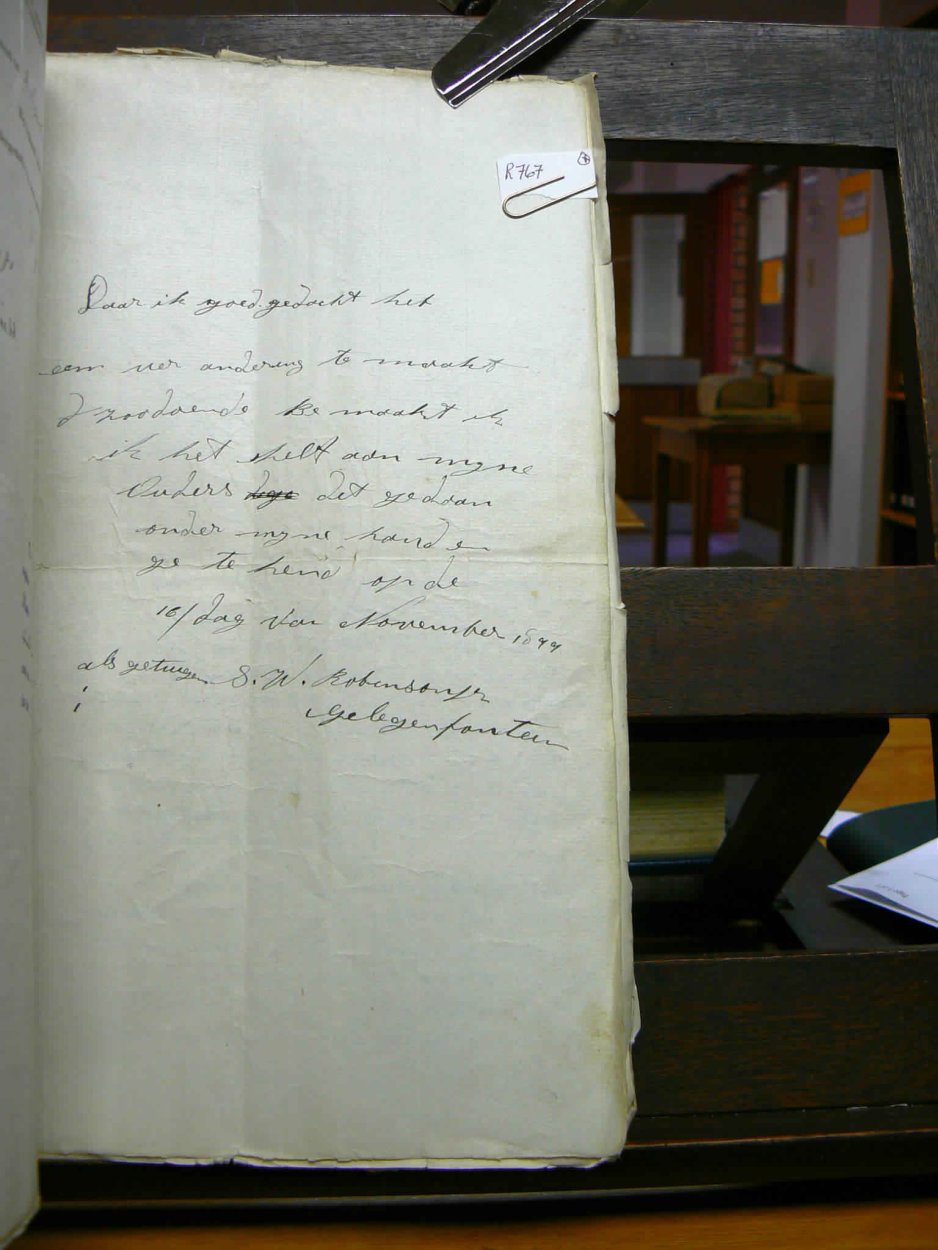 R767
Daar ik goed gedacht het
een ver andering te maakt
zoodoende Be maakt ik
ik het shelf aan myne
Ouders dit gedaan
onder myne hand en
ge te kend op de
16/ dag van November 1899
als getuigen S. W. Robinson Jr
Gelegenfontein